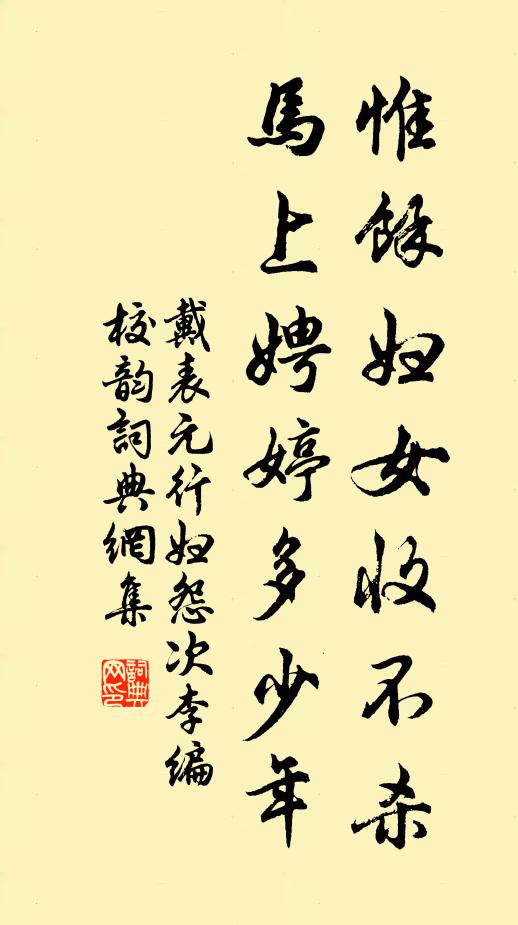 惟餘妇女收不杀
馬上娉婷多少年
戴表元行妇怨次李编
校韵詞典網集
詞典网印